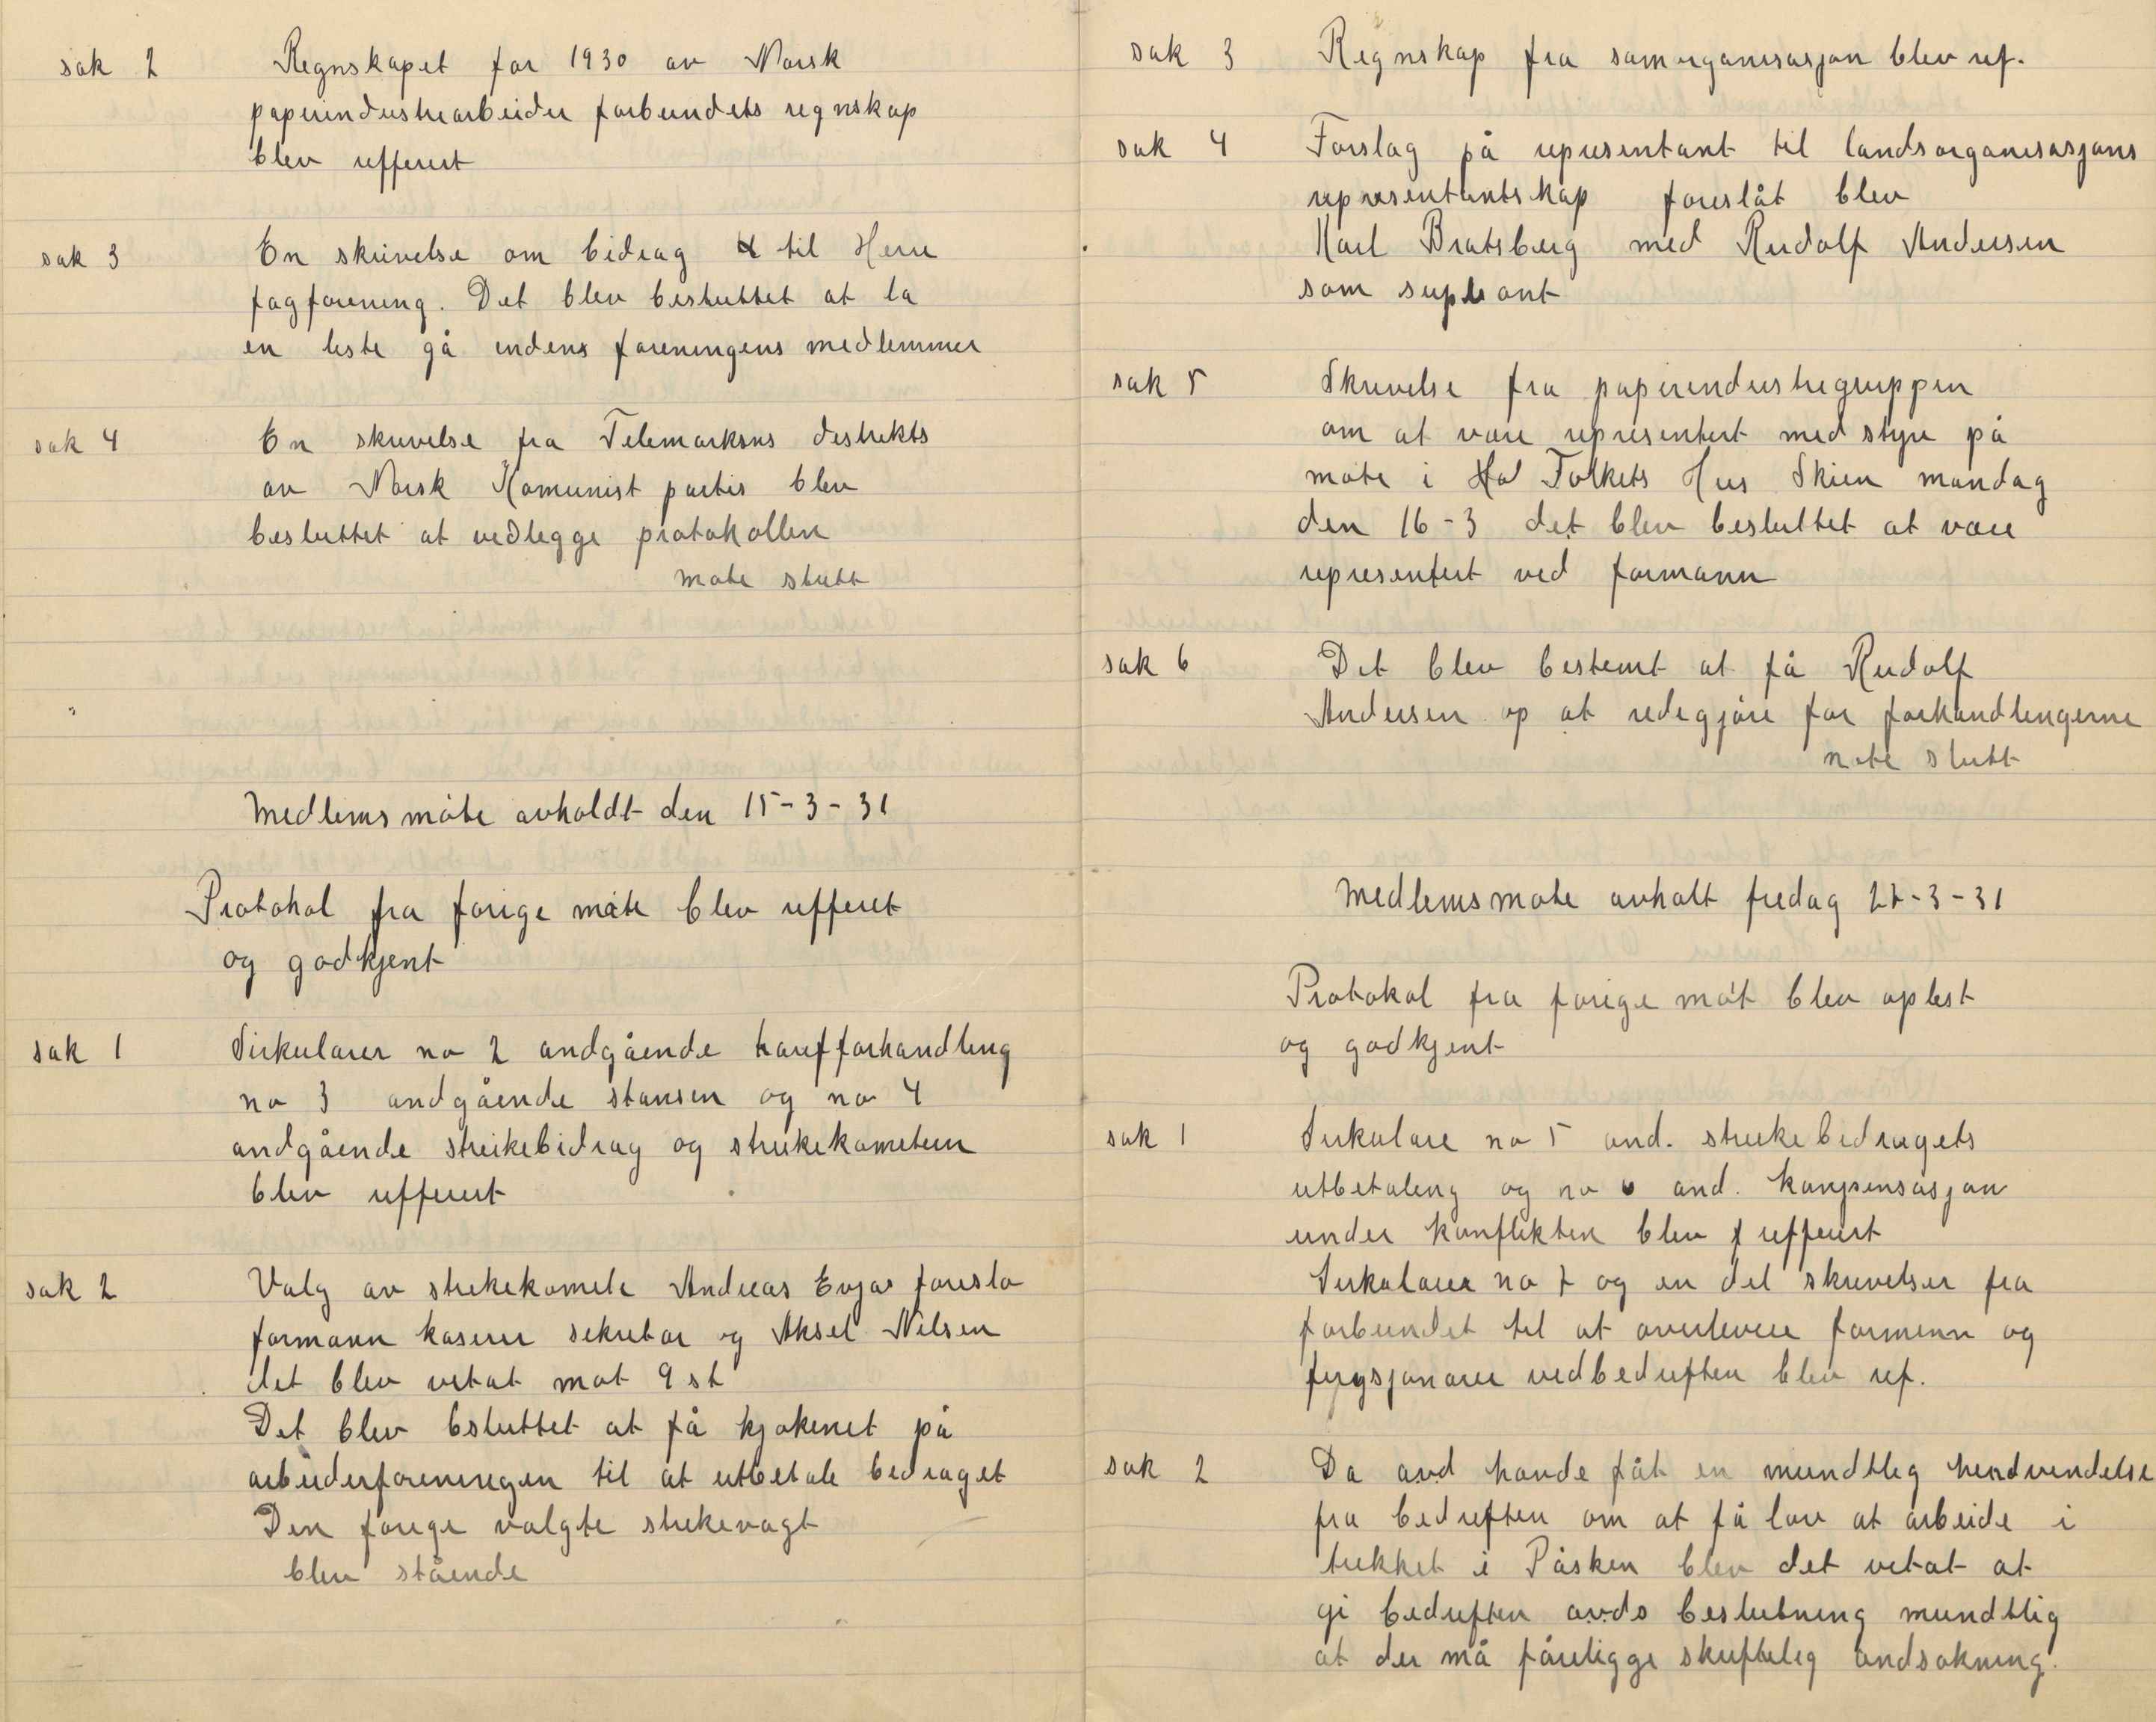 sak 2 Regnskapet for 1930 av Norsk
papirindustriarbeider forbundets regnskap
blev refferert
sak 3 En skrivelse om bidrag til Herre
fagforening. Det blev besluttet at la
en liste gå indens foreningens medlemmer
sak 4 En skrivelse fra Telemarksns distrikts
av Norsk Komunist partis blev
besluttet at vedlegge protokollen
møte slutt
Medlemsmøte avholdt den 15-3-31
Protokol fra forige møte blev refferet
og godkjent
sak 1 Sirkularer no 2 andgående tarifforhandling
no 3 andgående stansen og no 4
andgående streikebidrag og streikekometeen
blev refferert
sak 2 Valg av streikekomite Andreas Evja foreslo
formann kaserer sekretær og Aksel Nilsen
det blev vetat mot 9 st
Det blev bsluttet at få kjøkenet på
arbeiderforeningen til at utbetale bidraget
Den forige valgte streikevagt
blev stående
sak 3 Regnskap fra samorganisasjon blev ref.
sak 4 Forslag på representant til landsorganisasjons
representantskap foreslåt blev
Karl Bratsberg med Rudolf Andersen
som supleant
sak 5 Skrivelse fra papirindustrigruppen
om at være representert med styre på
møte i Folkets Hus Skien mandag
den 16-3 det blev besluttet at være
representert ved formann
sak 6 Det blev bestemt at få Rudolf
Andersen op at redegjøre for forhandlingerne
møte slutt
Medlemsmøte avholt fredag 27-3-31
Protokol fra forige møt blev oplest
og godkjent
sak 1 Sirkulare no 5 and. streikebidragets
utbetaling og no 6 and. kompensasjon
under konflikten blev refferert
Sirkularer no 7 og en del skrivelser fra
forbundet til at overlevere formenn og
fungsjonarer vedbedriften blev ref.
sak 2 Da avd havde fåt en mundtlig hendvendelse
fra bedriften om at få lov at arbeide i
trekket i Påsken blev det vetat at
gi bedriften avds beslutning mundtlig
at der må foreligge skriftelig andsøkning.